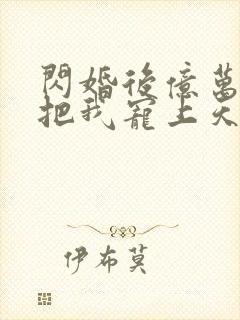 閃婚後億萬
把我寵上天
伊布莫